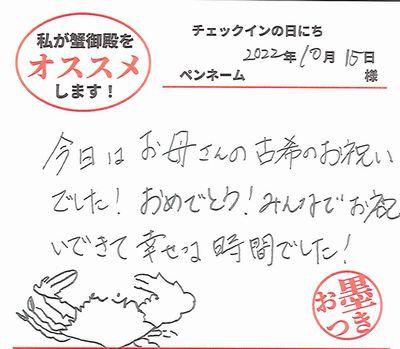 私が蟹御殿を
オススメ
します！
チェックインの日にち
2022年10月15日
ペンネーム 様
今日はお母さんの古希のお祝い
でした！おめでとう！みんなでお祝
いできて幸せな時間でした！
お墨
つき